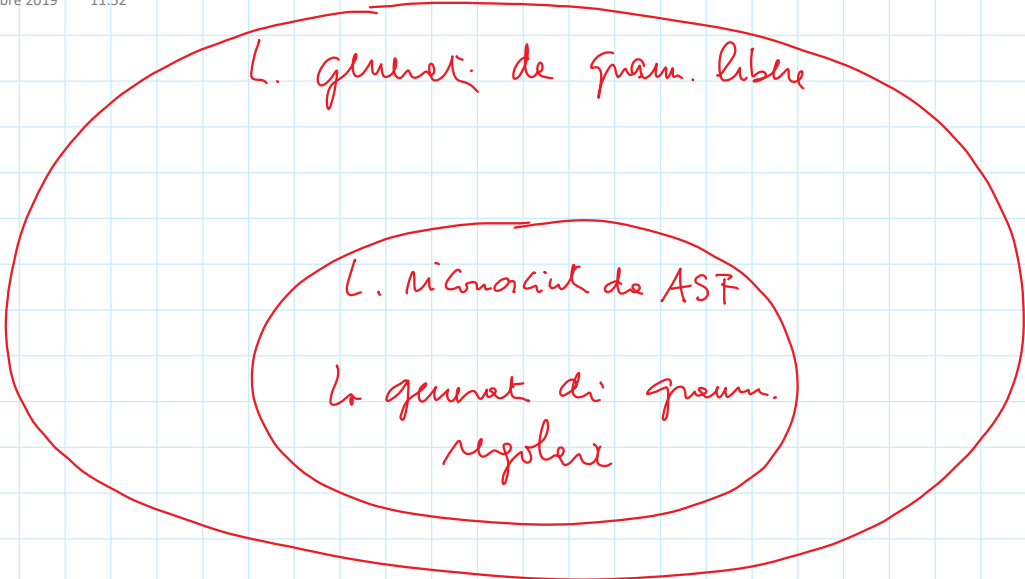 bre 2019 11:52
L. generat. da gramm. libere
L. riconosciuti da ASF
L. generat di gramm.
regolare